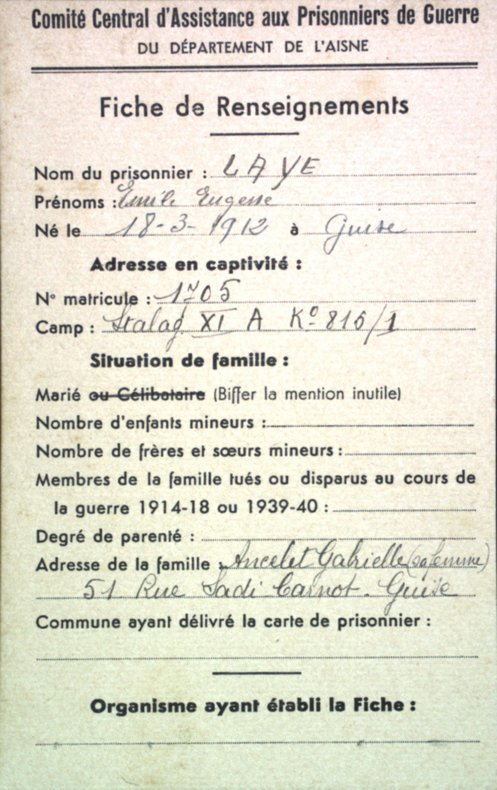 Comité Central d'Assistance aux Prisonniers de Guerre
DU DÉPARTEMENT DE L'AISNE
Fiche de Renseignements
Nom du prisonnier : LAYE
Prénoms : Emile Eugene
Né le 18-3-1912 à Guise
Adresse en captivité :
N° matricule : 1705
Camp : Stalag XI A Ko 816/1
Situation de famille :
Marié ou Célibataire (Biffer la mention inutile)
Nombre d'enfants mineurs :
Nombre de frères et sœurs mineurs :
Membres de la famille tués ou disparus au cours de
la guerre 1914-18 ou 1939-40 :
Degré de parenté :
Adresse de la famille : Ancelet Gabrielle (sa femme)
51 Rue Sadi Carnot - Guise
Commune ayant délivré la carte de prisonnier :
Organisme ayant établi la Fiche :